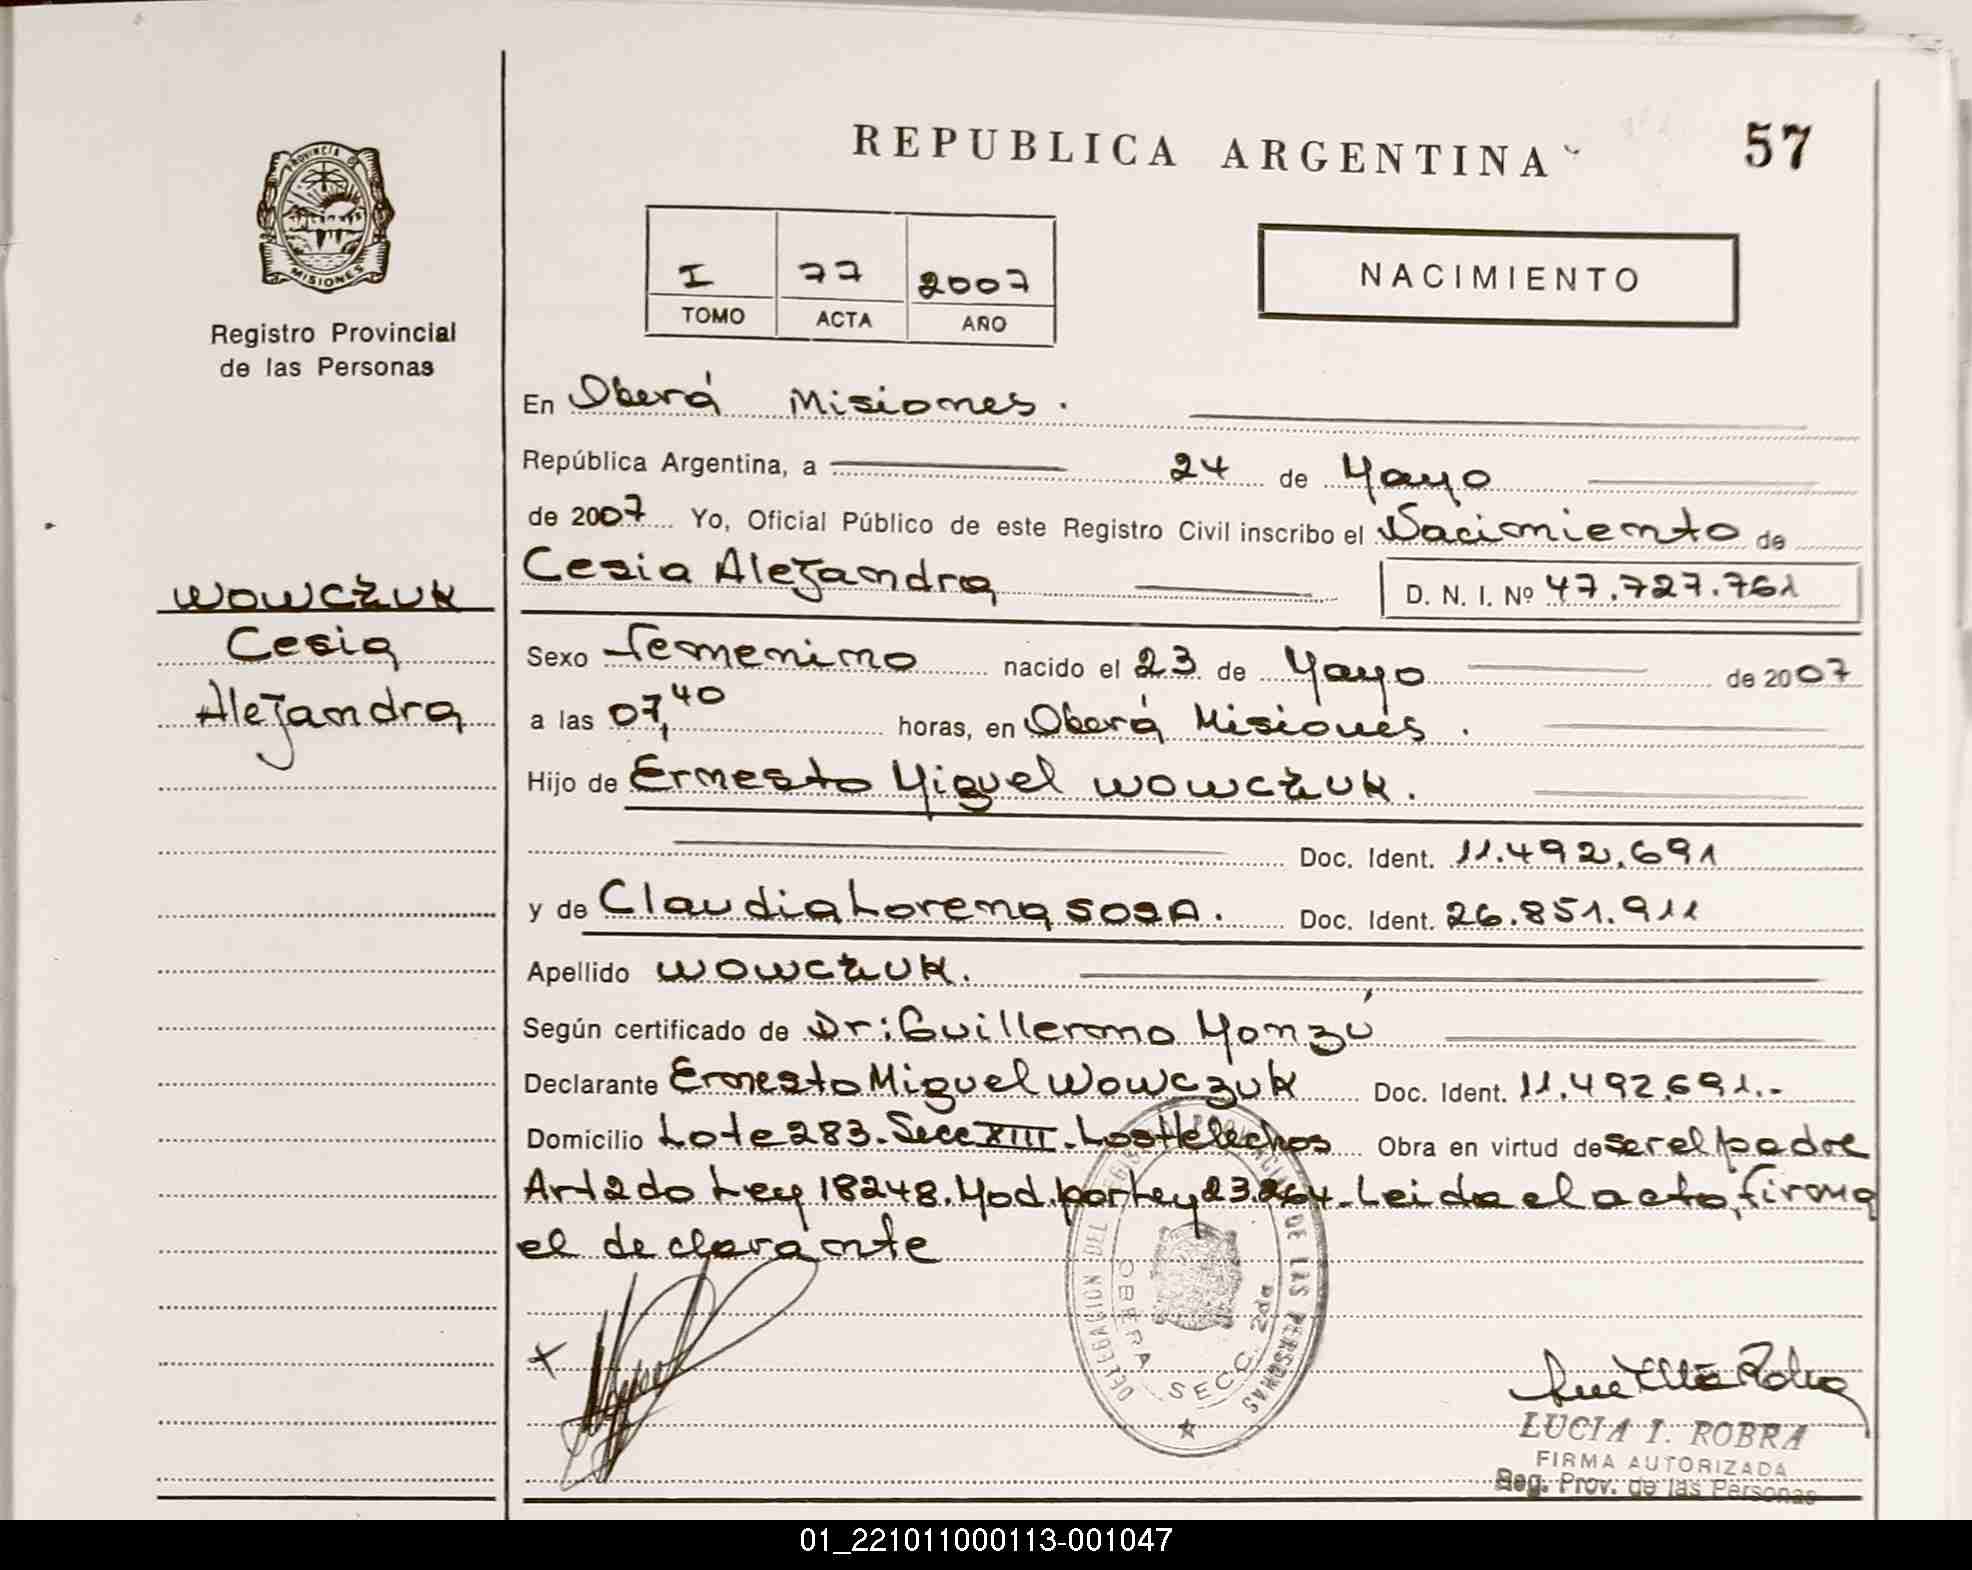 REPUBLICA ARGENTINA
57
PROVINCIA D
MISIONES
Registro Provincial
de las Personas
I 77 2007
TOMO ACTA AÑO
NACIMIENTO
En Oberá Misiones.
República Argentina, a 24 de Mayo
de 2007 Yo, Oficial Público de este Registro Civil inscribo el Nacimiento de
Cesia Alejandra D. N. I. Nº 47.727.761
WOWCZUK
Cesia
Alejandra
Sexo Femenino nacido el 23 de Mayo de 2007
a las 07,40 horas, en Oberá Misiones.
Hijo de Ernesto Miguel WOWCZUK.
Doc. Ident. 11.492.691
y de Claudia Lorena SOSA. Doc. Ident. 26.851.911
Apellido WOWCZUK.
Según certificado de Dr: Guillermo Monzú
Declarante Ernesto Miguel Wowczuk Doc. Ident. 11.492.691.-
Domicilio Lote 283. Secc XIII. Los Helechos Obra en virtud de ser el padre
Art 2do Ley 18248. Mod. por Ley 23.264. Leida el acta, firma
el declarante
DELEGACION DEL PROVINCIAL DE LAS PERSONAS
OBERA SECC. 2da
LUCIA I. ROBRA
FIRMA AUTORIZADA
Reg. Prov. de las Personas
01_221011000113-001047